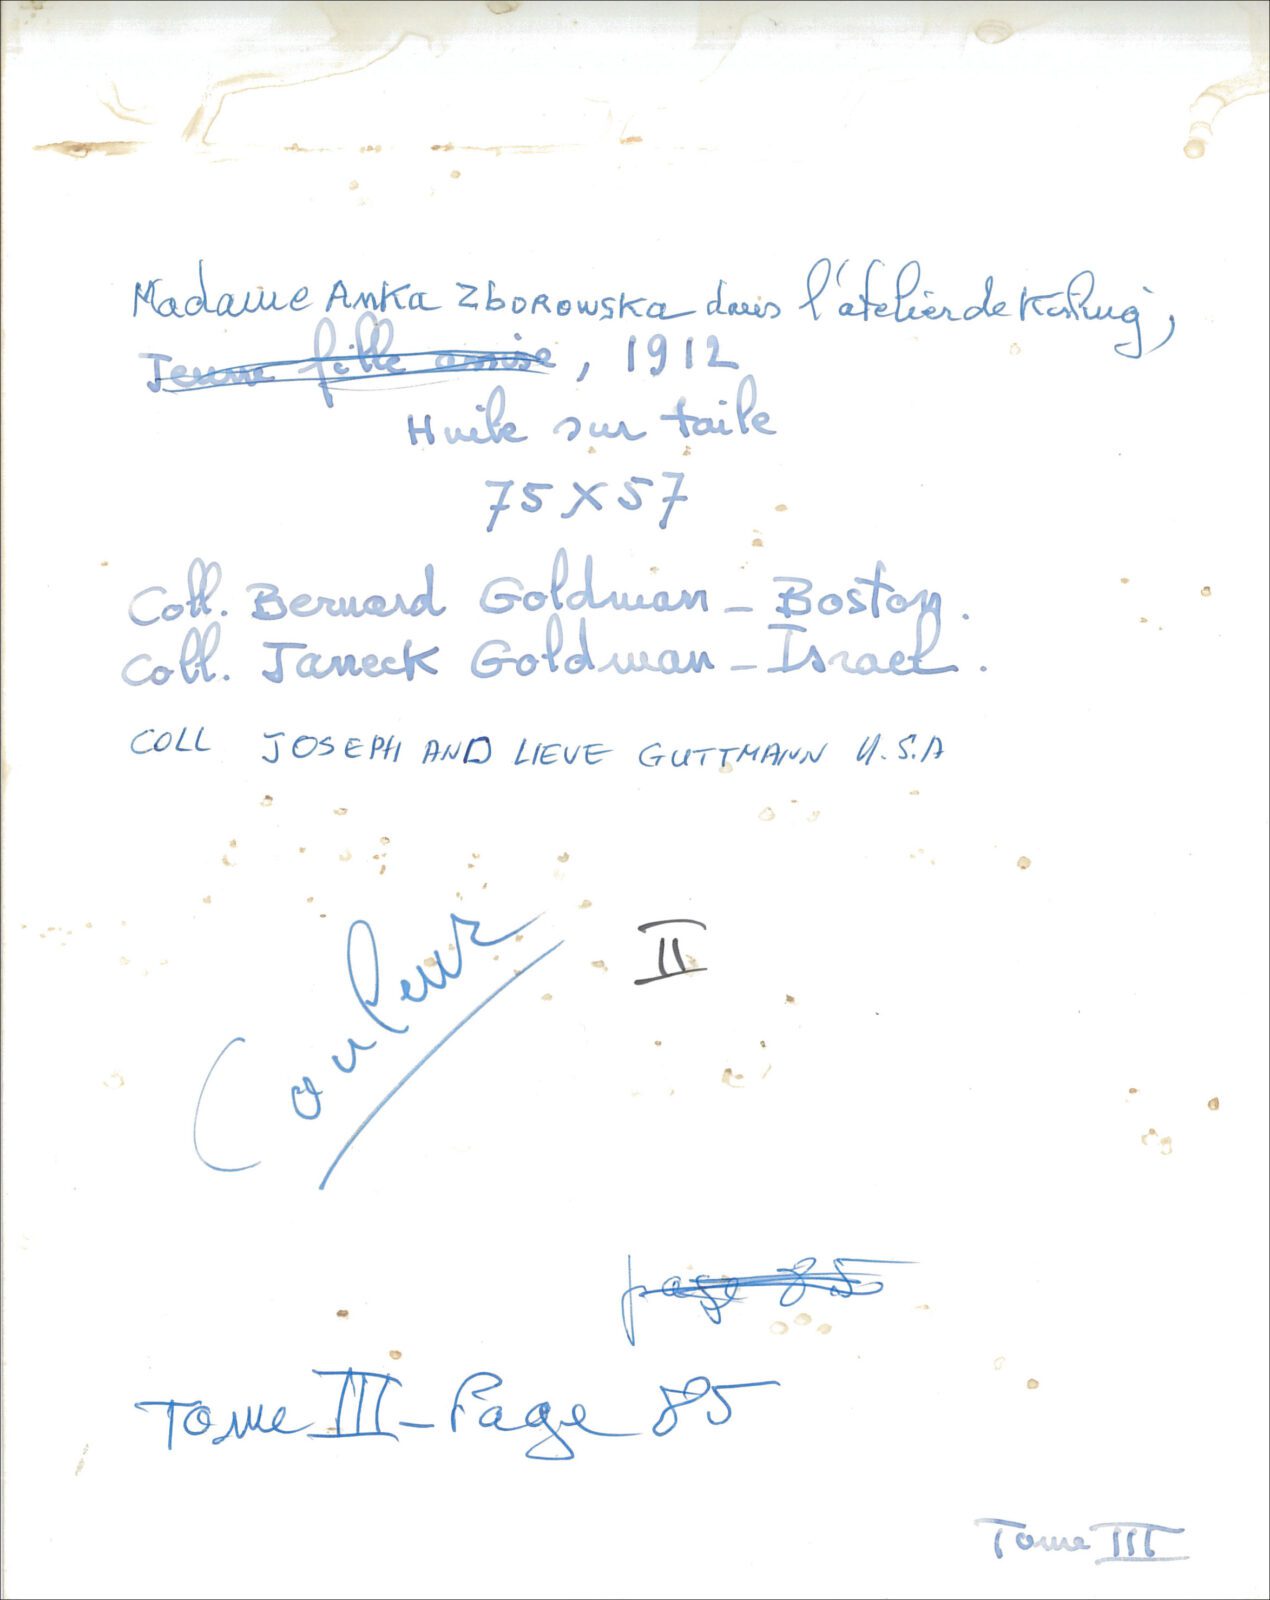 Madame Anka Zborowska dans l'atelier de Kisling,
Jeune fille assise, 1912
Huile sur toile
75 X 57
Coll. Bernard Goldman - Boston.
Coll. Janeck Goldman - Israel.
COLL JOSEPH AND LIEVE GUTTMANN U.S.A
Couleur
II
page 85
Tome III - Page 85
Tome III